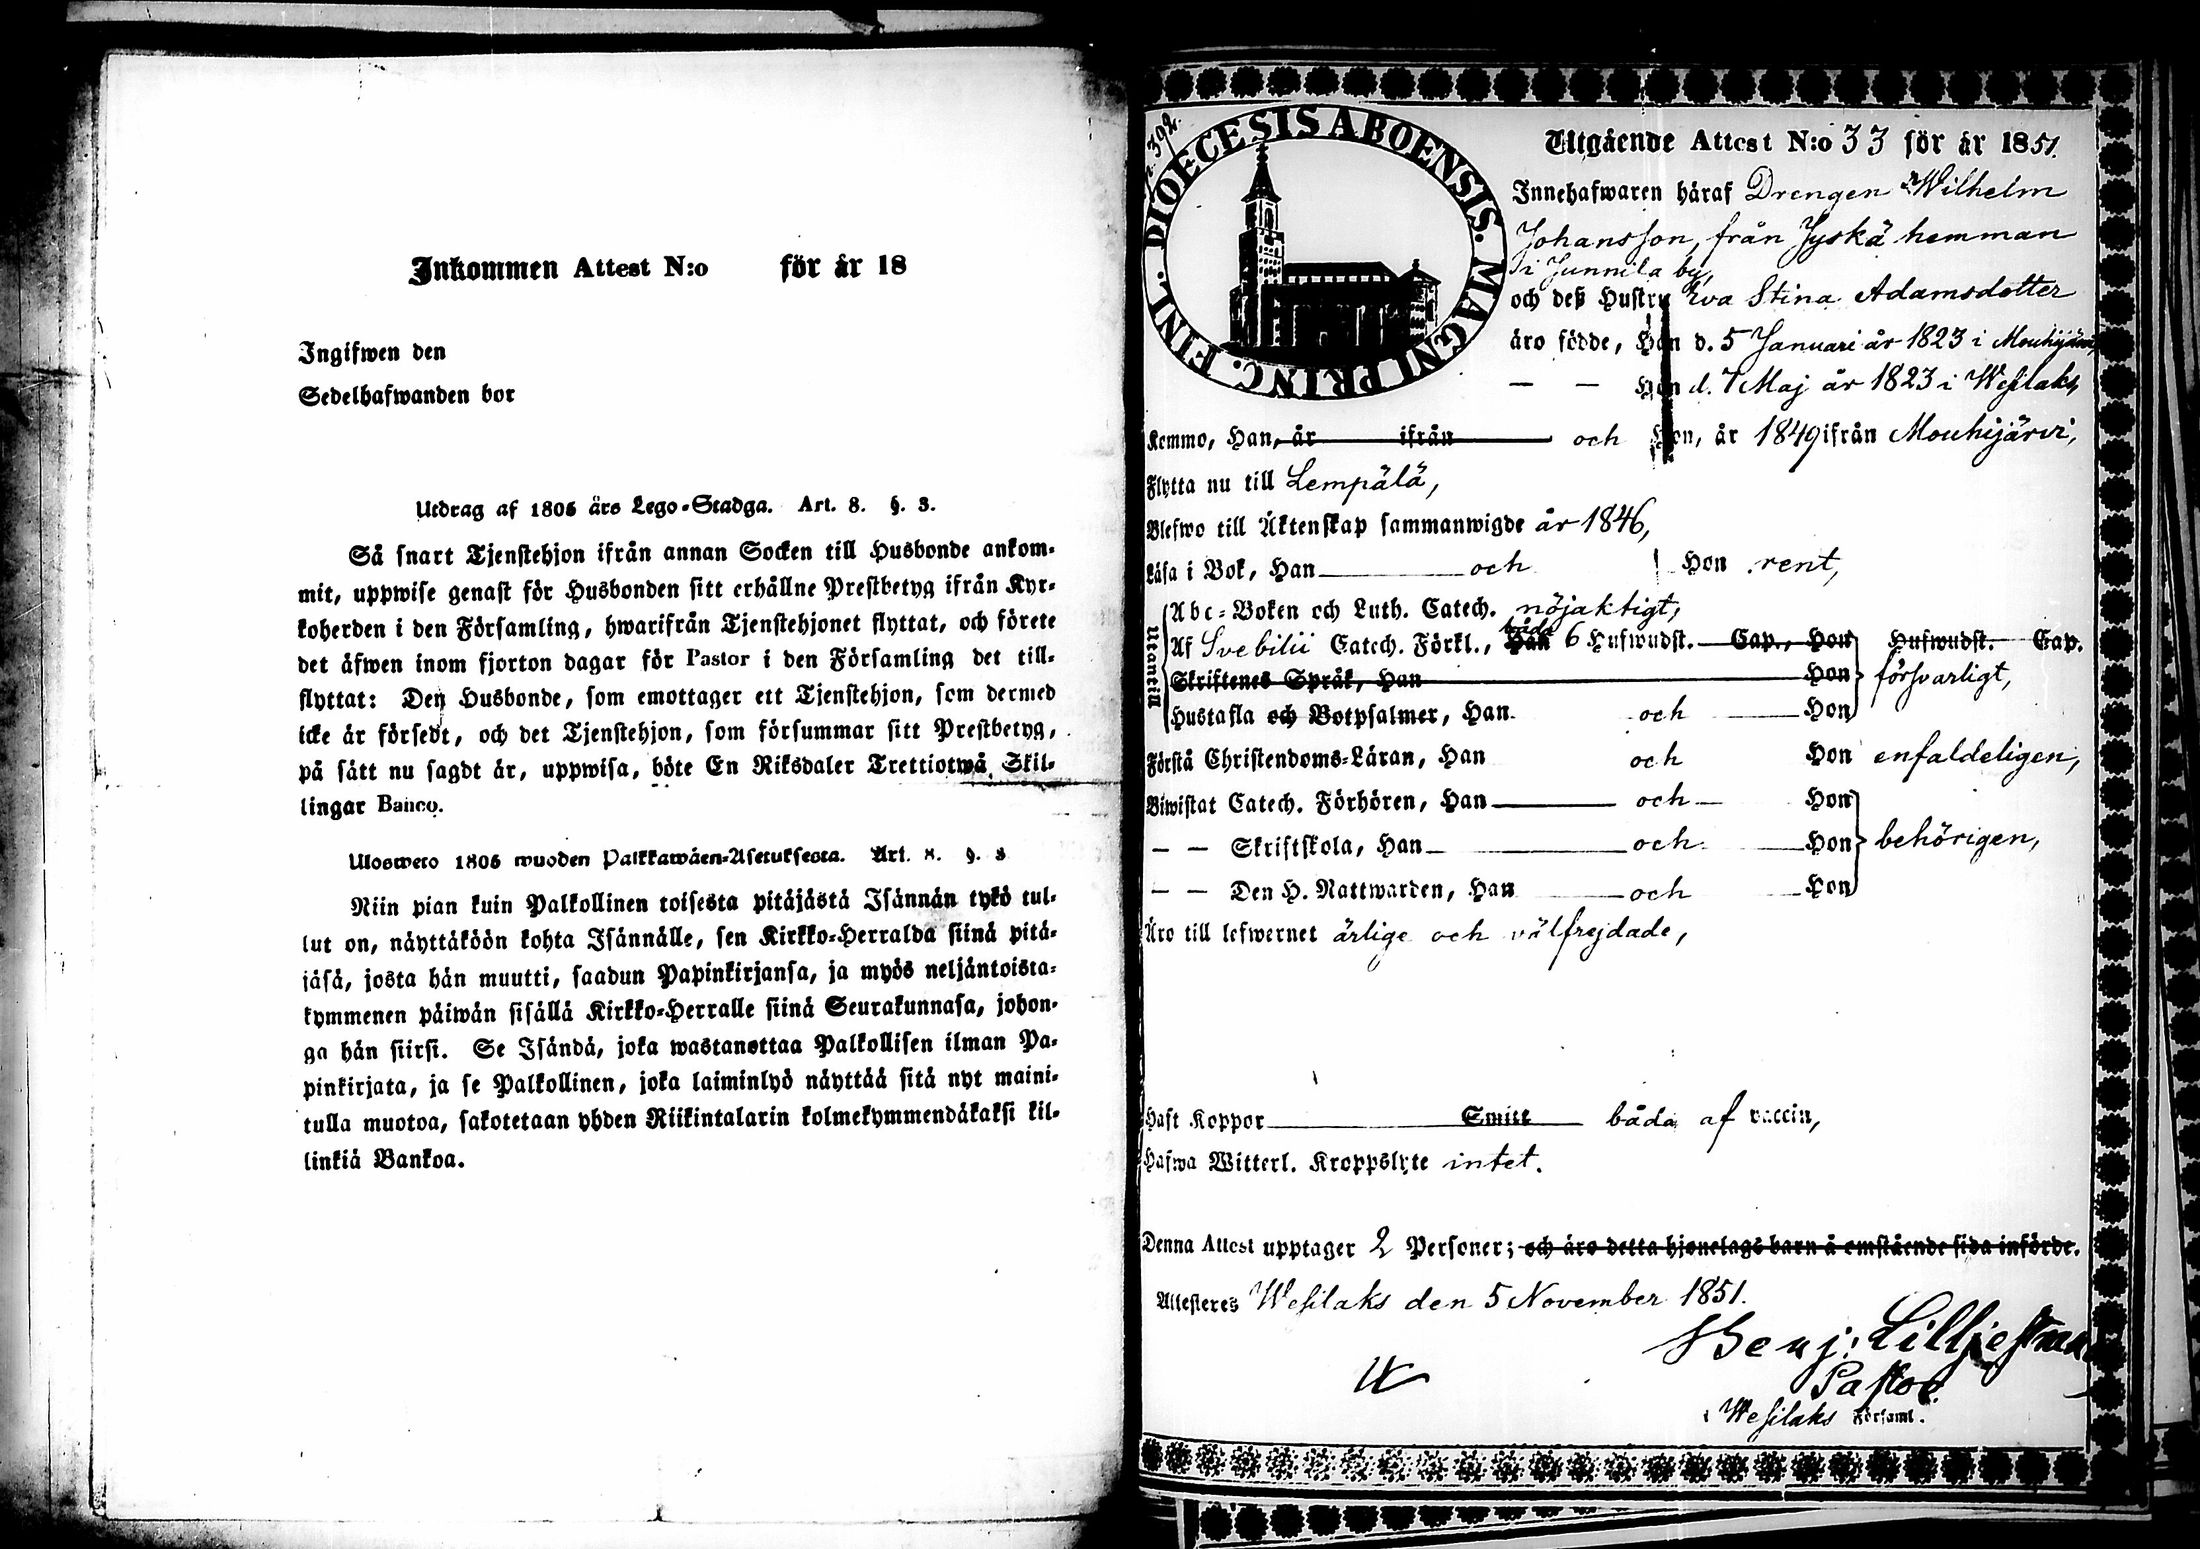 Inkommen Attest N:o för år 18
Ingifwen den
Sedelhafwanden bor
Utdrag af 1805 års Lego-Stadga. Art. 8. §. 3.
Så snart Tjenstehjon ifrån annan Socken till Husbonde ankom-
mit, uppwise genast för Husbonden sitt erhållne Prestbetyg ifrån Kyr-
koherden i den Församling, hwarifrån Tjenstehjonet flyttat, och förete
det äfwen inom fjorton dagar för Pastor i den Församling det till-
flyttat: Den Husbonde, som emottager ett Tjenstehjon, som dermed
icke är försedt, och det Tjenstehjon, som försummar sitt Prestbetyg,
på sätt nu sagdt är, uppwisa, böte En Riksdaler Trettiotwå Skil-
lingar Banco.
Ulosweto 1805 wuoden Palkkawäen-Asetuksesta. Art. 8. §. 3
Niin pian kuin Palkollinen toisesta pitäjästä Isännän tykö tul-
lut on, näyttäköön kohta Isännälle, sen Kirkko-Herralda siinä pitä-
jäsä, josta hän muutti, saadun Papinkirjansa, ja myös neljäntoista-
kymmenen päiwän sisällä Kirkko-Herralle siinä Seurakunnasa, johon-
ga hän siirsi. Se Isändä, joka wastanottaa Palkollisen ilman Pa-
pinkirjata, ja se Palkollinen, joka laiminlyö näyttää sitä nyt maini-
tulla muotoa, sakotetaan yhden Riikintalarin kolmekymmendäkaksi kil-
linkiä Bankoa.
p. 392.
DIOECESIS ABOENSIS. MAGNI PRINC. FINL.
Utgående Attest N:o 33 för år 1851.
Innehafwaren häraf Drengen Wilhelm
Johansson, från Jyskä hemman
i Junnila by,
och deß Hustru Eva Stina Adamsdotter
äro födde, Han d. 5 Januari år 1823 i Mouhijärvi,
— — Hon d. 7 Maj år 1823 i Wesilaks,
Kommo, Han, år ifrån och Hon, år 1849 ifrån Mouhijärvi,
Flytta nu till Lempälä,
Blefwo till Äktenskap sammanwigde år 1846,
Läsa i Bok, Han och Hon rent,
Utantill
Abc-Boken och Luth. Catech. nöjaktigt,
båda
Af Svebilii Catech. Förkl., Han 6 Hufwudst. Cap., Hon Hufwudst. Cap.
Skriftenes Språk, Han Hon försvarligt,
Hustafla och Botpsalmer, Han och Hon
Förstå Christendoms-Läran, Han och Hon enfaldeligen,
Biwistat Catech. Förhören, Han och Hon
— — Skriftskola, Han och Hon behörigen,
— — Den H. Nattwarden, Han och Hon
Äro till lefwernet ärlige och välfrejdade,
Haft Koppor Smitt båda af vaccin,
Hafwa Witterl. Kroppslyte intet.
Denna Attest upptager 2 Personer; och äro detta hjonelags barn å omstående sida införde.
Attesteres Wesilaks den 5 November 1851.
Benj: Lilljestrand
Pastor
i Wesilaks Församl.